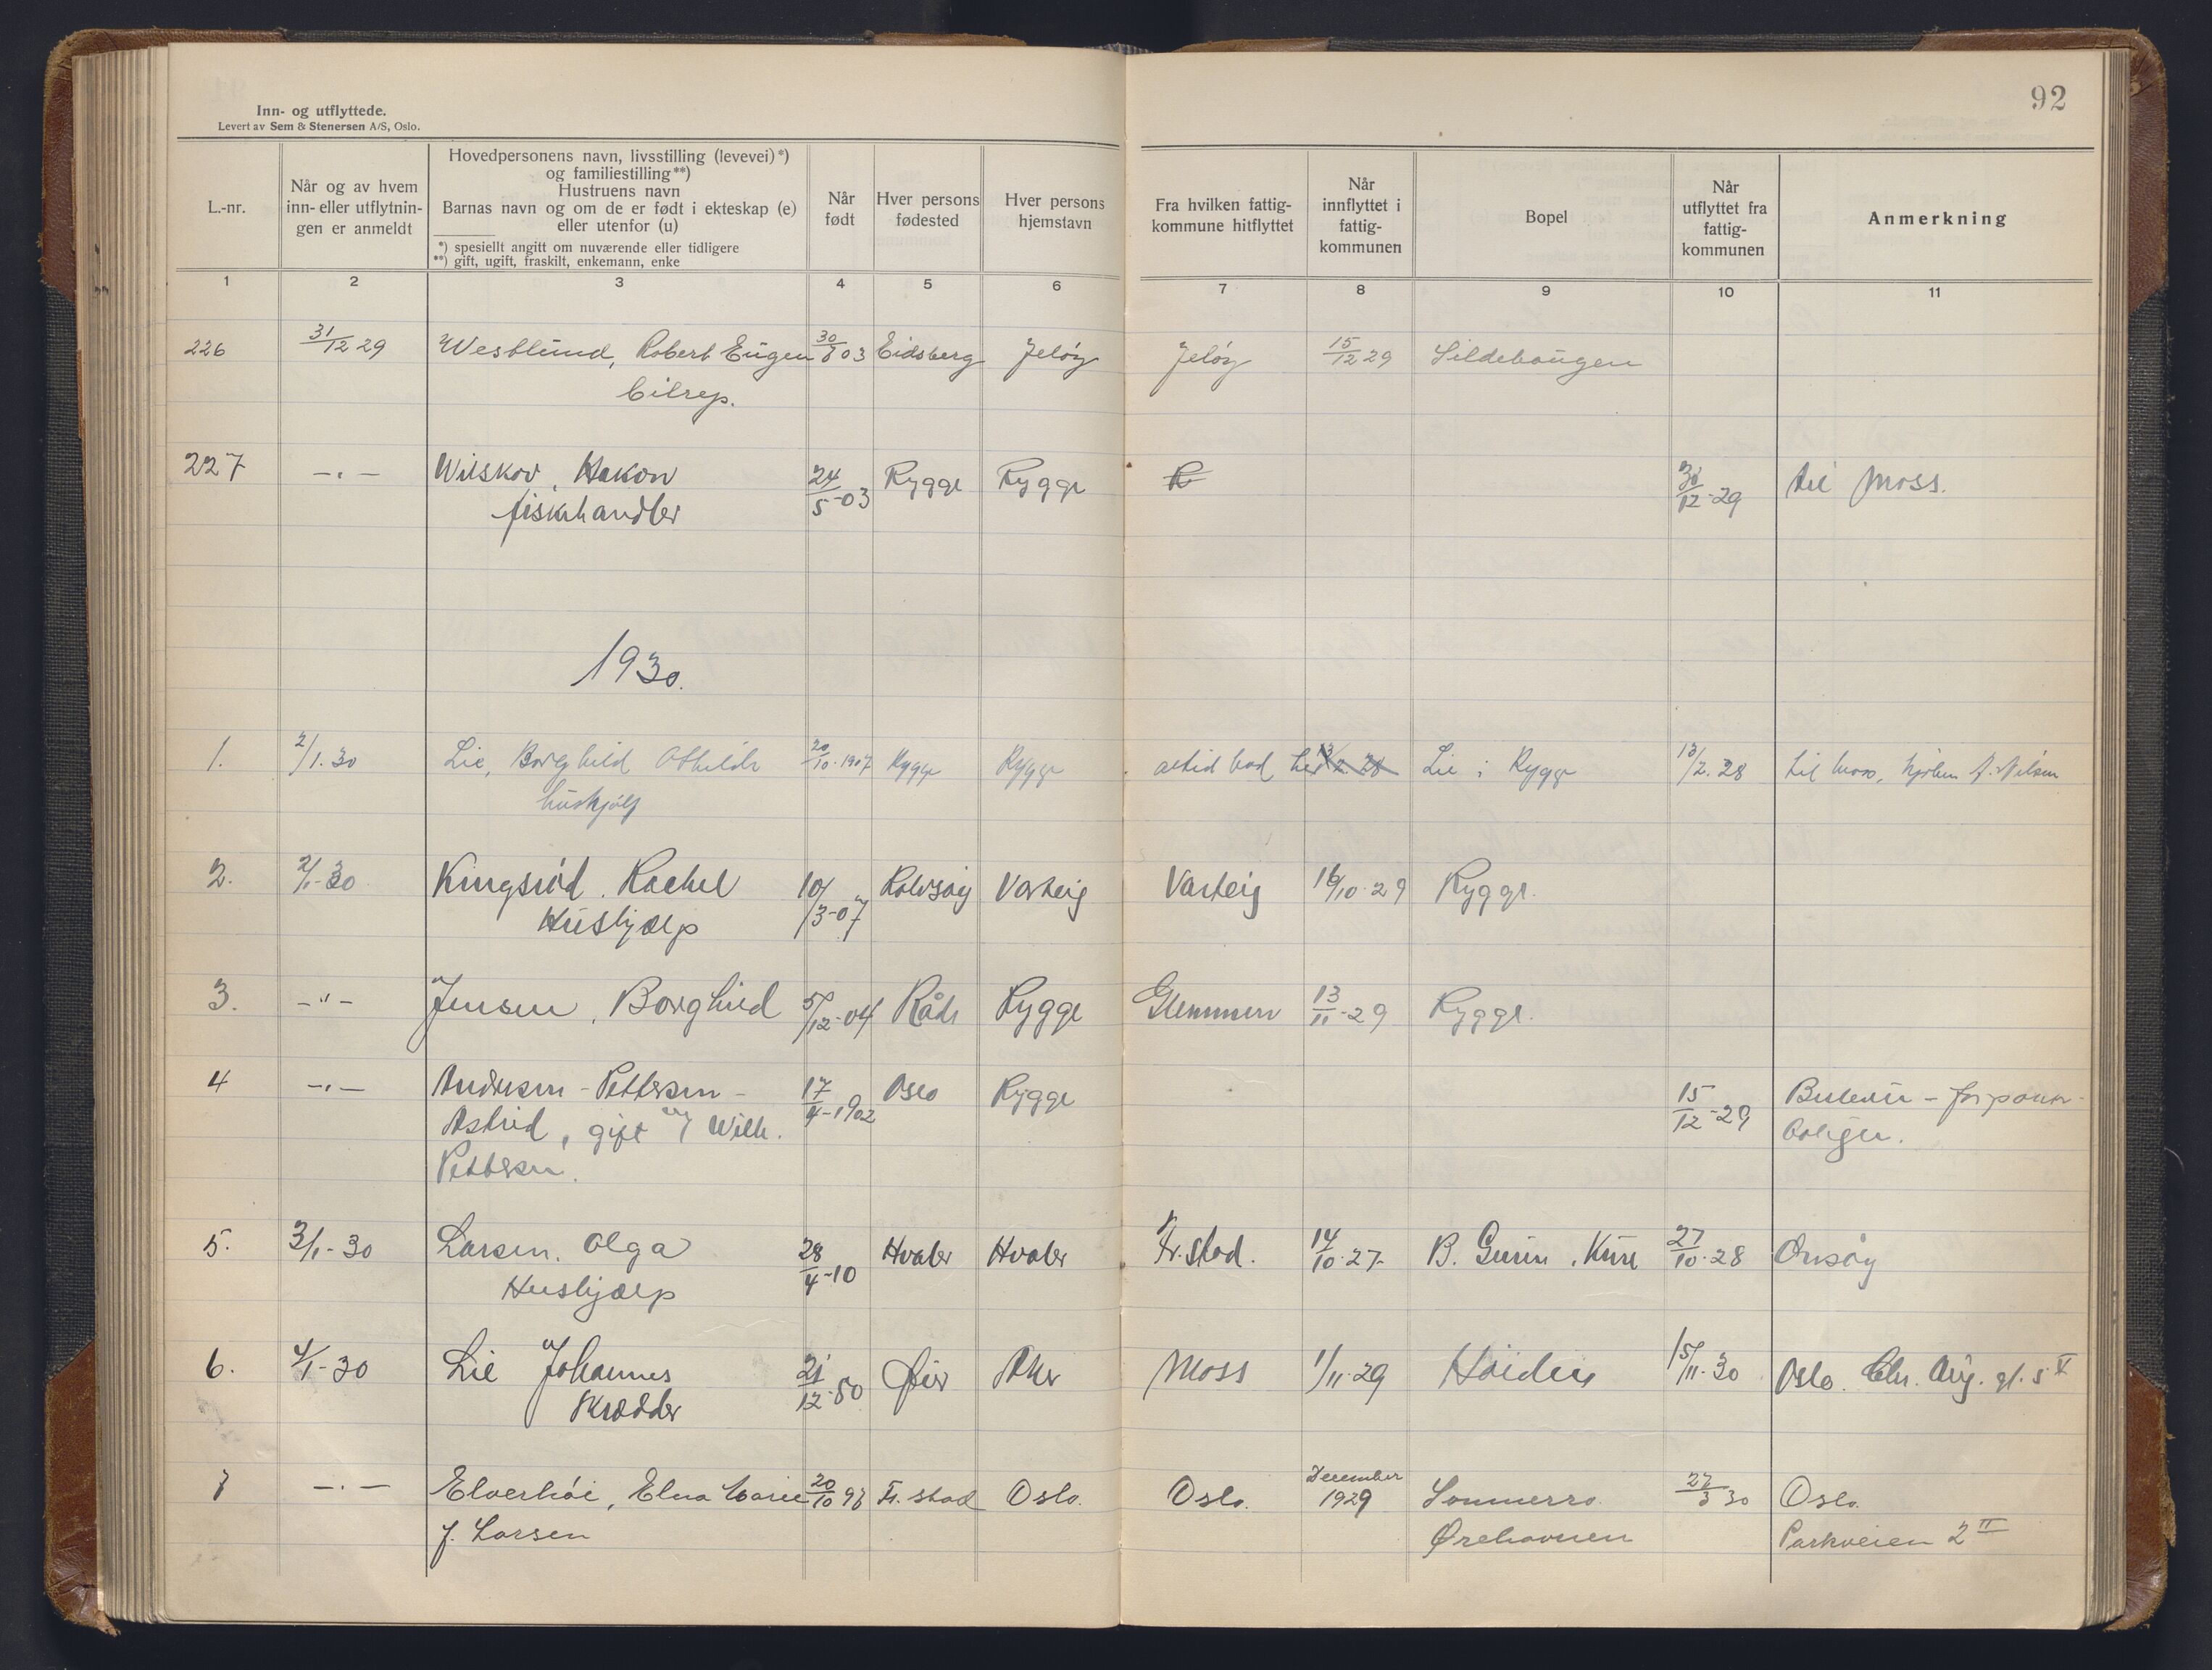 92
Inn- og utflyttede.
Levert av Sem & Stenersen A/S, Oslo.
L.-nr.
Når og av hvem
inn- eller utflytnin-
gen er anmeldt
Hovedpersonens navn, livsstilling (levevei)*)
og familiestilling**)
Hustruens navn
Barnas navn og om de er født i ekteskap (e)
eller utenfor (u)
*) spesiellt angitt om nuværende eller tidligere
**) gift, ugift, fraskilt, enkemann, enke
Når
født
Hver persons
fødested
Hver persons
hjemstavn
Fra hvilken fattig-
kommune hitflyttet
Når
innflyttet i
fattig-
kommunen
Bopel
Når
utflyttet fra
fattig-
kommunen
Anmerkning
1 2 3 4 5 6 7 8 9 10 11
226 31/12 29 Westlund, Robert Eugen 30/8 03 Eidsberg Jeløy Jeløy 15/12 29 Sildebaugen
bilrep.
227 -"- Wilskov, Hakon 24/5-03 Rygge Rygge R 30/12-29 til Moss.
fiskehandler
1930.
1. 2/1.30 Lie, Borghild Othilde 20/10.1907 Rygge Rygge altid bod her 13/2 28 Lie i Rygge 13/2.28 til Moss, A. Nilsen
hushjelp
2. 2/1-30 Kingsrød, Rachel 10/3-07 Rolvsøy Varteig Varteig 16/10.29 Rygge.
Hushjælp
3. -"- Jensen, Borghild 5/12-04 Råde Rygge Glemmen 13/11-29 Rygge.
4 -"- Andersen-Pettersen- 17/4-1902 Oslo Rygge 15/12-29
Astrid, gift m/ Wilh.
Pettersen.
boliger.
5. 3/1-30 Larsen, Olga 28/4-10 Hvaler Hvaler Fr.stad. 14/10.27- B. Kure 27/10.28 Onsøy
Hushjælp
6. 4/1-30 Lie Johannes 21/12-80 Øier Aker Moss 1/11-29 Høiden 15/11.30 Oslo. Chr. Aug. gt. 5 V
Skrædder
7 -"- Elverhøi, Elna Marie 20/10 97 Fr. stad Oslo. Oslo. December 1929 Sommerro 27/3 30 Oslo.
f. Larsen Ørehavnen Parkveien 2 II